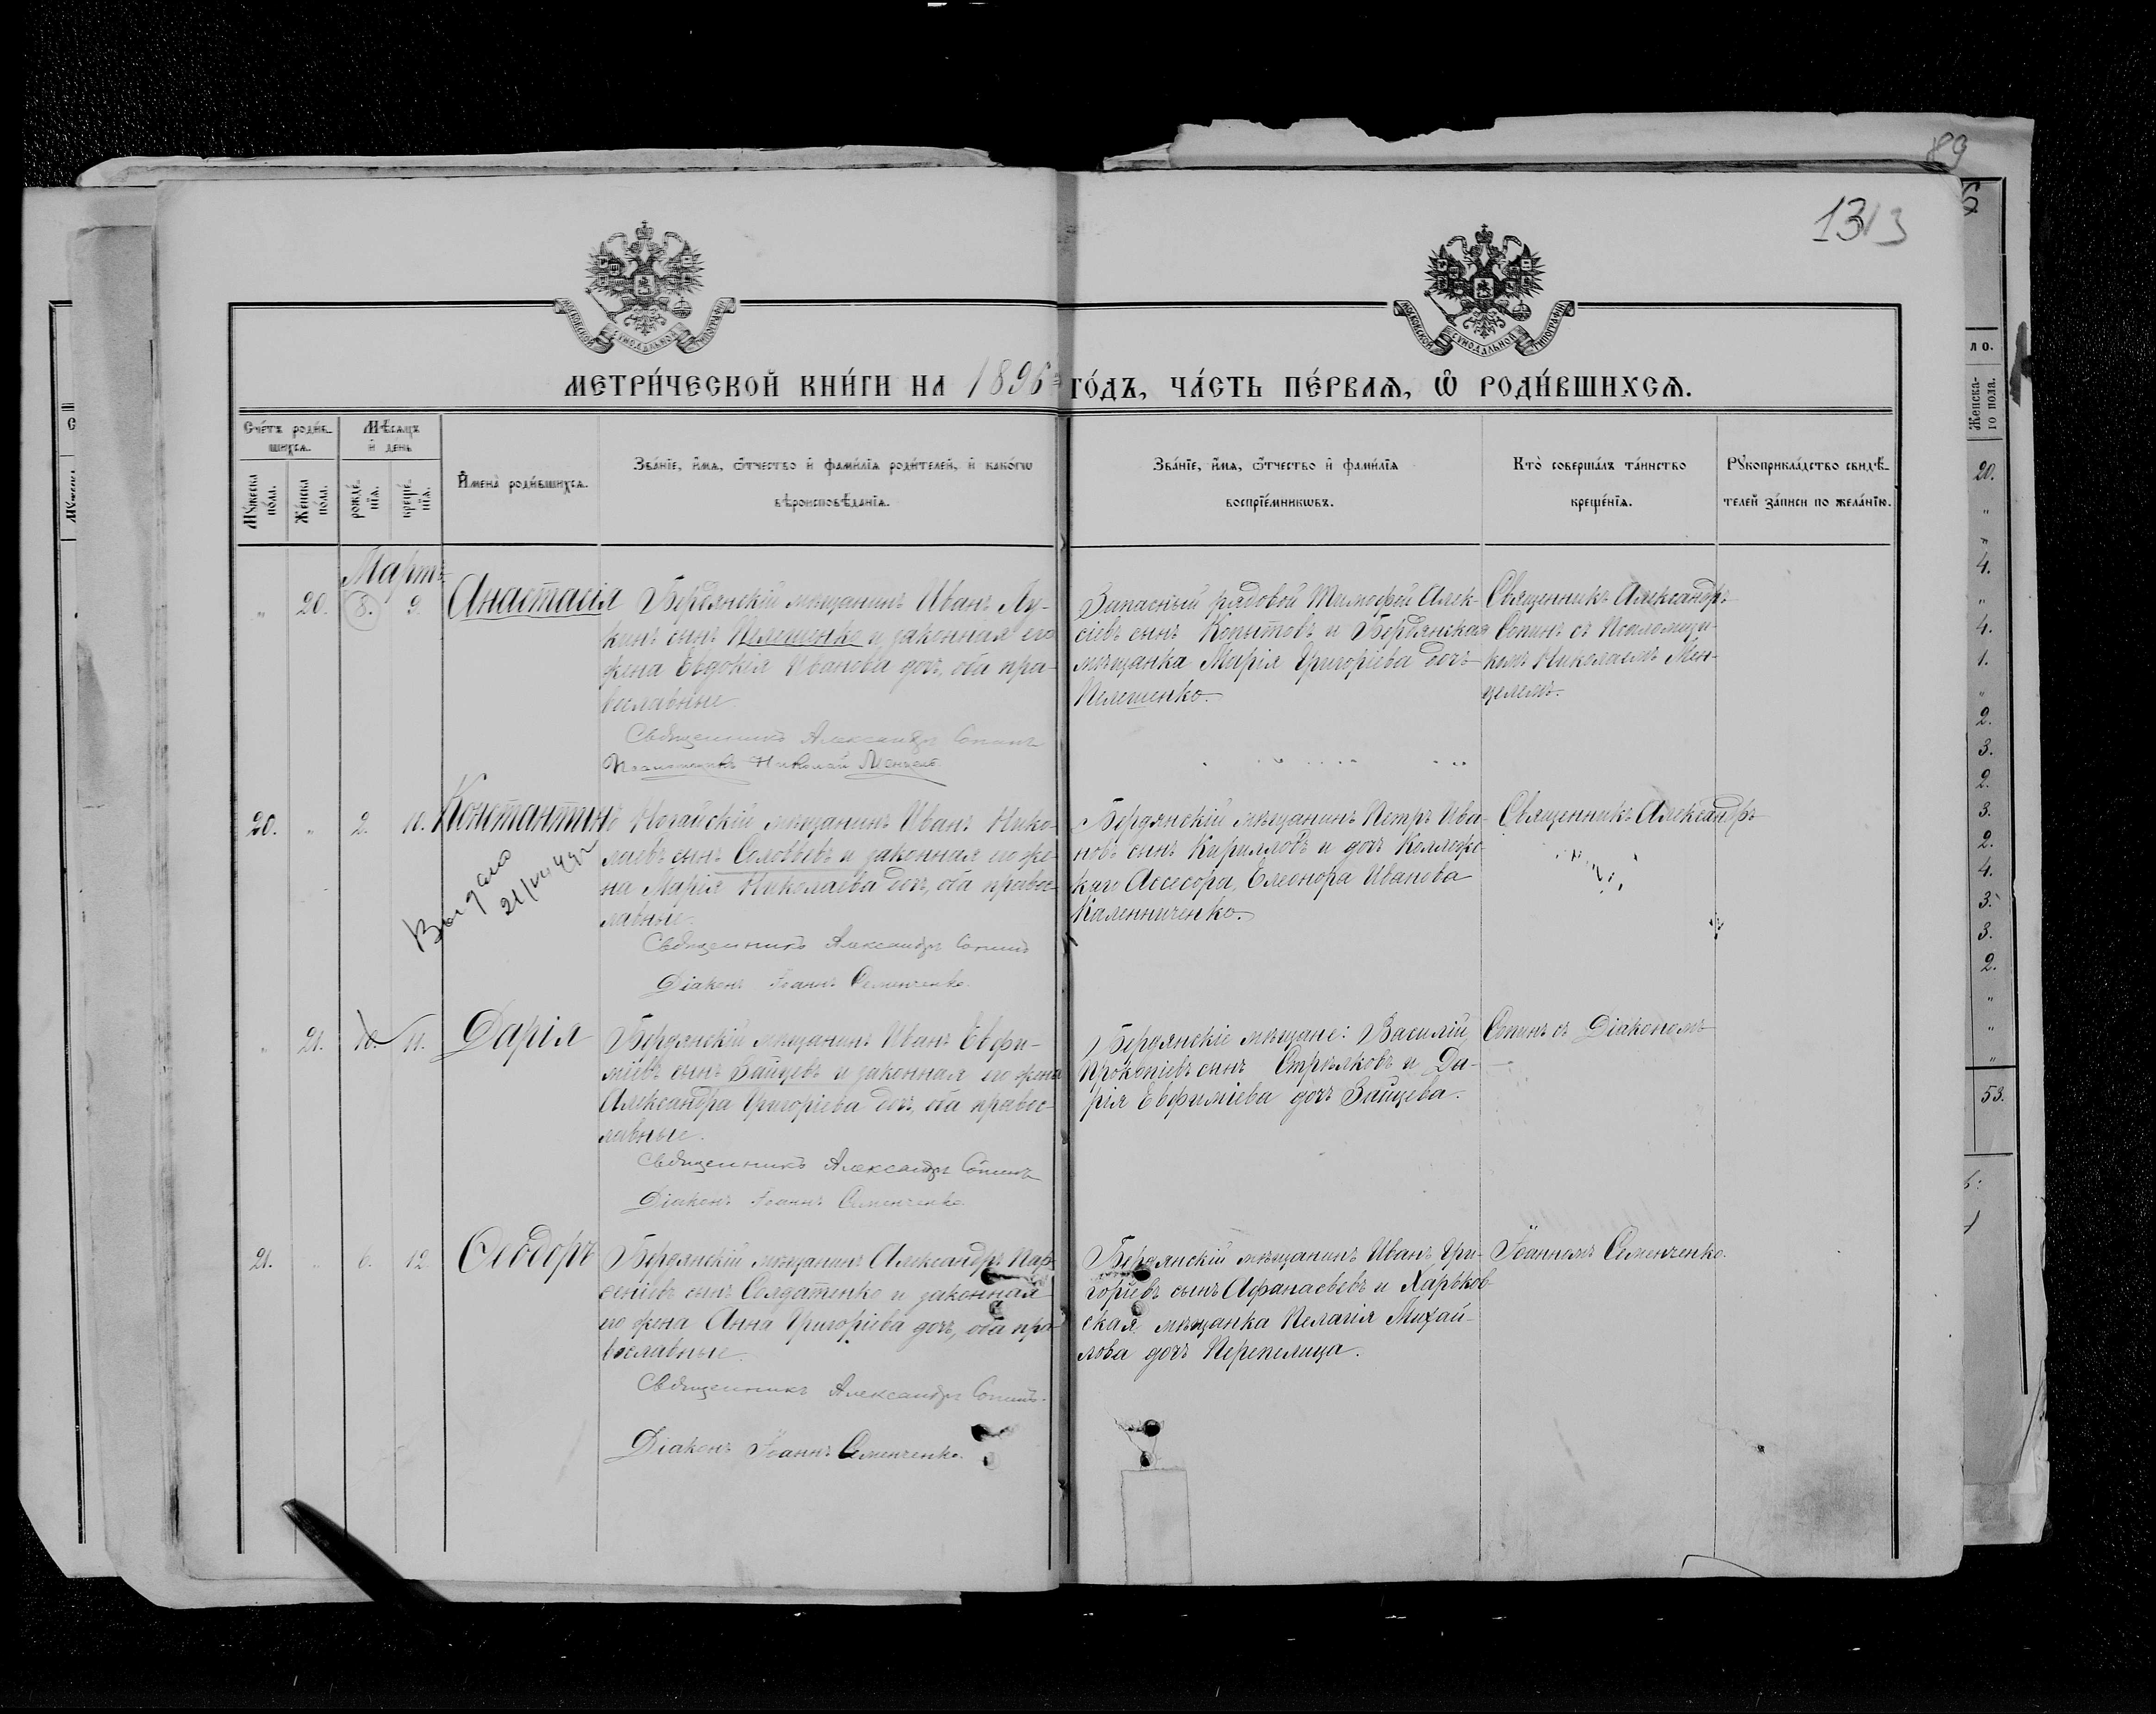 89
1313
МОСКОВСКОЙ СѴНОДАЛЬНОЙ ТИПОГРАФІИ
МОСКОВСКОЙ СѴНОДАЛЬНОЙ ТИПОГРАФІИ
МЕТРИ́ЧЕСКОЙ КНИ́ГИ НА 1896 ГО́ДЪ, ЧА́СТЬ ПЕ́РВАѦ, Ѡ РОДИ́ВШИХСѦ.
Сче́тъ роди́в-
шихсѧ.
Мѣ́сѧцъ
и҆ день
Мꙋ́жеска
по́ла.
Же́нска
по́ла.
рожде́-
нїѧ.
креще́-
нїѧ.
И҆мена̀ роди́вшихсѧ.
Зва́нїе, и҆́мѧ, ѻ҆́тчество и҆ фами́лїѧ роди́телей, и҆ како́гѡ
вѣроисповѣ́данїѧ.
Зва́нїе, и҆́мѧ, ѻ҆́тчество и҆ фами́лїѧ
воспрїе́мникѡвъ.
Кто̀ соверша́лъ та́инство
креще́нїѧ.
Рꙋкоприкла́дство свидѣ́-
телей за́писи по жела́нїю.
Мартъ
" 20. 8. 9. Анастасія
Бердянскій мѣщанинъ Иванъ Лу-
кинъ сынъ Пелешенко и законная его
жена Евдокія Иванова дочь, оба пра-
вославные.
Священникъ Александръ Сопинъ
Псаломщикъ Николай Менцель
Запасный рядовой Тимофей Алек-
сіевъ сынъ Копытовъ и Бердянская
мѣщанка Марія Григоріева дочь
Пелешенко.
Священникъ Александръ
Сопинъ съ Псаломщи-
комъ Николаемъ Мен-
целемъ.
20. " 2. 10. Константинъ
Выдано
21/VIII 49г
Ногайскій мѣщанинъ Иванъ Нико-
лаевъ сынъ Соловьевъ и законная его же-
на Марія Николаева дочь, оба правос-
лавные.
Священникъ Александръ Сопинъ
Діаконъ Іоаннъ Семенченко.
Бердянскій мѣщанинъ Петръ Ива-
новъ сынъ Кирилловъ и дочь Коллежс-
каго Ассесора, Елеонора Иванова
Калениченко.
Священникъ Александръ
" 21. 10. 11. Дарія
Бердянскій мѣщанинъ Иванъ Евфи-
міевъ сынъ Зайцевъ и законная его жена
Александра Григоріева дочь, оба правос-
лавные.
Священникъ Александръ Сопинъ
Діаконъ Іоаннъ Семенченко.
Бердянскіе мѣщане: Василій
Прокопіевъ сынъ Стрѣлковъ и Да-
рія Евфиміева дочь Зайцева.
Сопинъ съ Діакономъ
21. " 6. 12. Ѳеодоръ
Бердянскій мѣщанинъ Александръ Пар-
ѳеніевъ сынъ Солдатенко и законная
его жена Анна Григоріева дочь, оба пра-
вославные.
Священникъ Александръ Сопинъ.
Діаконъ Іоаннъ Семенченко.
Бердянскій мѣщанинъ Иванъ Гри-
горіевъ сынъ Афанасьевъ и Харьков-
ская мѣщанка Пелагія Михай-
лова дочь Перепелица.
Іоанномъ Семенченко.
ло.
Женска-
го пола.
20.
"
"
4.
"
4.
1.
"
2.
3.
2.
3.
2.
4.
3.
3.
2.
"
"
"
53.